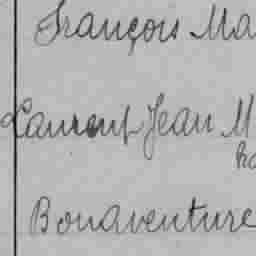 François Ma
Laurent Jean M
ha
Bonaventure